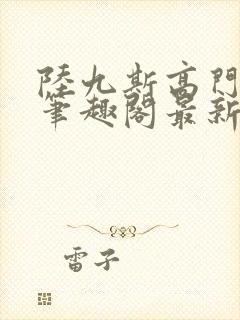 陸九斯高門
筆趣閣最新
雷子